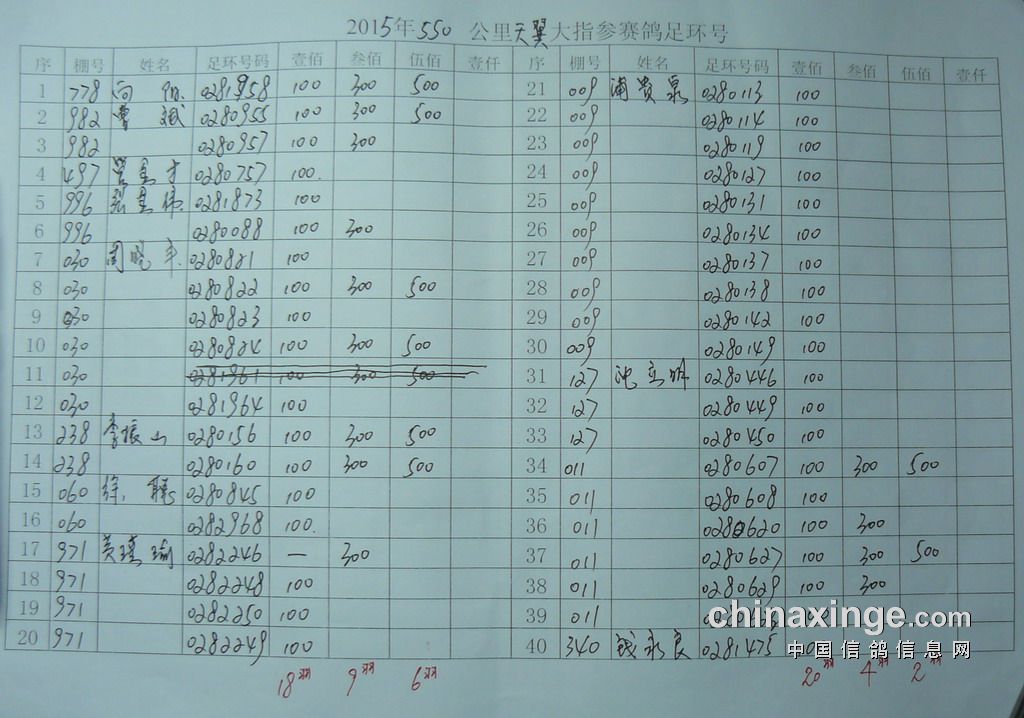 2015年550公里天翼大指参赛鸽足环号
序 棚号 姓名 足环号码 壹佰 叁佰 伍佰 壹仟 序 棚号 姓名 足环号码 壹佰 叁佰 伍佰 壹仟
1 778 向 0281958 100 300 500 21 009 浦贵泉 0280113 100
2 982 曹斌 0280955 100 300 500 22 009 0280114 100
3 982 0280957 100 300 23 009 0280119 100
4 497 0280757 100. 24 009 0280127 100
5 996 0281873 100 25 009 0280131 100
6 996 0280088 100 300 26 009 0280134 100
7 030 周晓丰 0280821 100 27 009 0280137 100
8 030 0280822 100 300 500 28 009 0280138 100
9 030 0280823 100 29 009 0280142 100
10 030 0280824 100 300 500 30 009 0280149 100
11 030 0281961 100 300 500 31 127 沈立明 0280446 100
12 030 0281964 100 32 127 0280449 100
13 238 李振山 0280156 100 300 500 33 127 0280450 100
14 238 0280160 100 300 500 34 011 0280607 100 300 500
15 060 徐 0280845 100 35 011 0280608 100
16 060 0282968 100. 36 011 0280620 100 300
17 971 黄瑾瑜 0282246 — 300 37 011 0280627 100 300 500
18 971 0282248 100 38 011 0280629 100 300
19 971 0282250 100 39 011
20 971 0282249 100 40 340 钱永良 0281475 100
18羽 9羽 6羽 20羽 4羽 2羽
chinaxinge.com
中国信鸽信息网